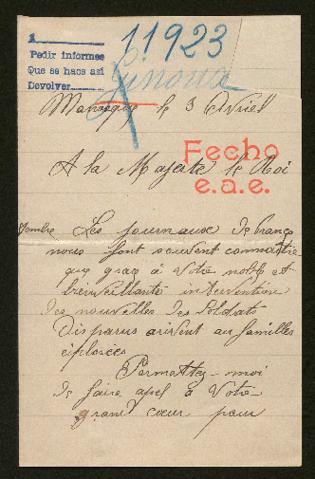 1
Pedir informes
Que se haga así
Devolver
11923
Gironda
Manosque le 3 Avril
Fecho
e.a.e.
A la Majesté le Roi
Les journaux de France
nous font souvent connaitre
que grace à Votre noble et
bienveillante intervention
des nouvelles des Soldats
Disparus arivent au familles
éplorées
Permattez-moi
de faire apel à Votre
grand cœur pour